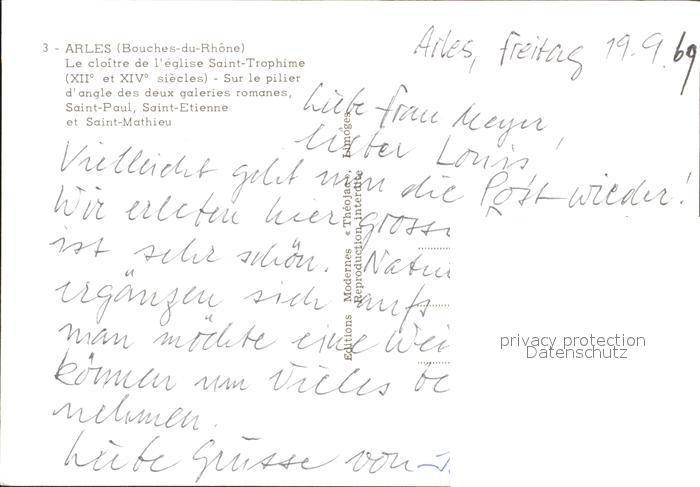 3 - ARLES (Bouches-du-Rhône)
Le cloître de l'église Saint-Trophime
(XII° et XIV° siècles) - Sur le pilier
d'angle des deux galeries romanes,
Saint-Paul, Saint-Etienne
et Saint-Mathieu
Arles, Freitag 19.9.69
Liebe Frau Meyer,
lieber Louis!
Vielleicht geht nun die Post wieder!
Wir erleben hier gross
ist sehr schön. Natur
ergänzen sich aufs
man möchte eine Wei
können um Vieles be
nehmen.
Liebe Grüsse von
Editions Modernes « Théojac », Limoges
Reproduction interdite
privacy protection
Datenschutz